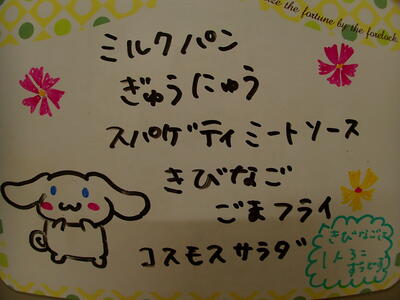 ize the fortune by the forelock.
ミルクパン
ぎゅうにゅう
スパゲティミートソース
きびなご
ごまフライ
コスモスサラダ
きびなごは